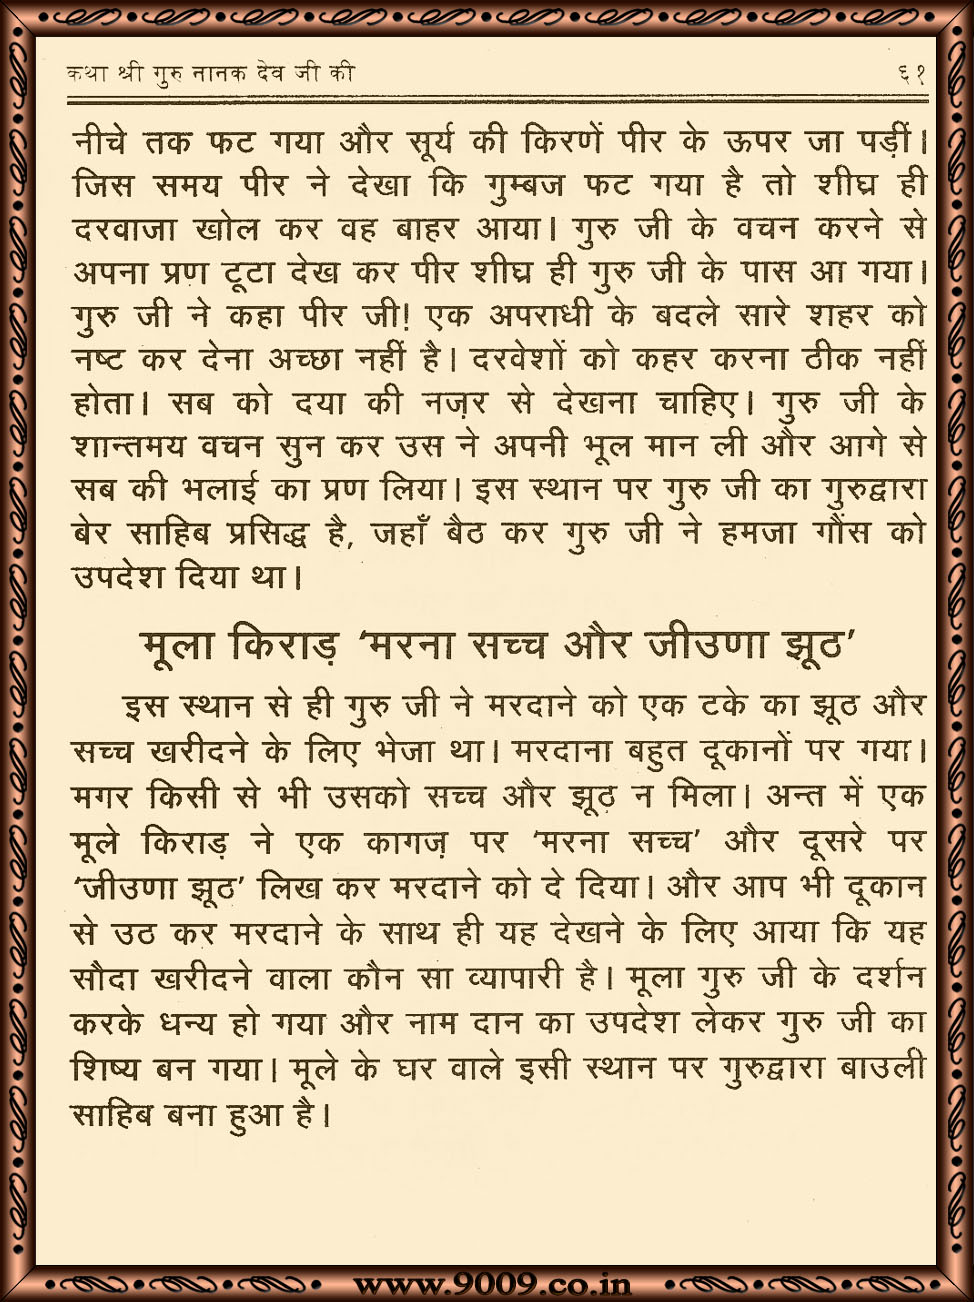 कथा श्री गुरु नानक देव जी की ६१
नीचे तक फट गया और सूर्य की किरणें पीर के ऊपर जा पड़ीं।
जिस समय पीर ने देखा कि गुम्बज फट गया है तो शीघ्र ही
दरवाजा खोल कर वह बाहर आया। गुरु जी के वचन करने से
अपना प्रण टूटा देख कर पीर शीघ्र ही गुरु जी के पास आ गया।
गुरु जी ने कहा पीर जी! एक अपराधी के बदले सारे शहर को
नष्ट कर देना अच्छा नहीं है। दरवेशों को कहर करना ठीक नहीं
होता। सब को दया की नज़र से देखना चाहिए। गुरु जी के
शान्तमय वचन सुन कर उस ने अपनी भूल मान ली और आगे से
सब की भलाई का प्रण लिया। इस स्थान पर गुरु जी का गुरुद्वारा
बेर साहिब प्रसिद्ध है, जहाँ बैठ कर गुरु जी ने हमजा गौंस को
उपदेश दिया था।
मूला किराड़ ‘मरना सच्च और जीउणा झूठ’
इस स्थान से ही गुरु जी ने मरदाने को एक टके का झूठ और
सच्च खरीदने के लिए भेजा था। मरदाना बहुत दूकानों पर गया।
मगर किसी से भी उसको सच्च और झूठ न मिला। अन्त में एक
मूले किराड़ ने एक कागज़ पर ‘मरना सच्च’ और दूसरे पर
‘जीउणा झूठ’ लिख कर मरदाने को दे दिया। और आप भी दूकान
से उठ कर मरदाने के साथ ही यह देखने के लिए आया कि यह
सौदा खरीदने वाला कौन सा व्यापारी है। मूला गुरु जी के दर्शन
करके धन्य हो गया और नाम दान का उपदेश लेकर गुरु जी का
शिष्य बन गया। मूले के घर वाले इसी स्थान पर गुरुद्वारा बाउली
साहिब बना हुआ है।
www.9009.co.in